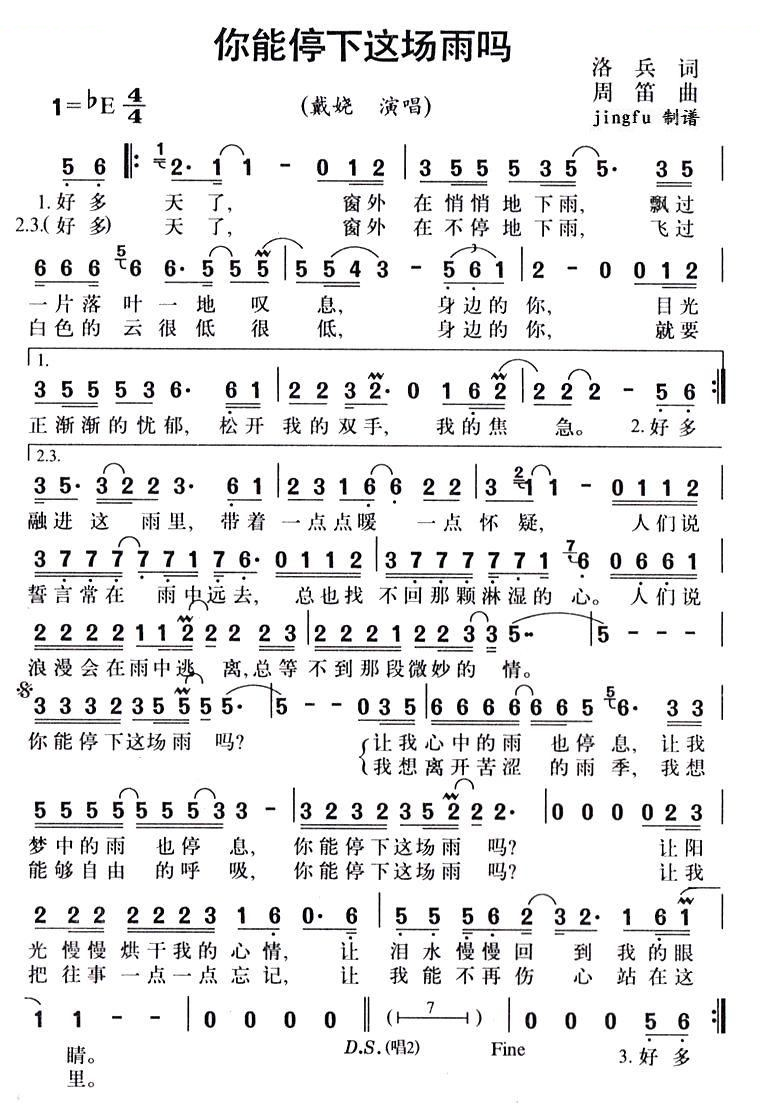 你能停下这场雨吗
洛兵 词
1=♭E 4/4 (戴娆 演唱) 周笛 曲
jingfu 制谱
5 6 ‖: 2· 1 1 - 0 0 1 2 | 3 5 5 5 3 5 5· 3 5
1.好多 天了, 窗外 在悄悄地下雨, 飘过
2.3.(好多) 天了, 窗外 在不停地下雨, 飞过
6 6 6 6 6· 5 5 5 | 5 5 4 3 - 5 6 1 | 2 - 0 0 1 2
一片落叶一地叹息, 身边的你, 日光
白色的云很低很低, 身边的你, 就要
1.
3 5 5 5 3 6· 6 1 | 2 2 3 2· 0 1 6 2 | 2 2 2 - 5 6 :‖
正渐渐的忧郁, 松开我的双手, 我的焦急。 2.好多
2.3.
3 5· 3 2 2 3· 6 1 | 2 3 1 6 6 2 2 | 3 1 1 - 0 1 1 2
融进这雨里, 带着一点点暖一点怀疑, 人们说
3 7 7 7 7 7 7 1 7 6· 0 1 1 2 | 3 7 7 7 7 7 7 1 6 0 6 6 1
誓言常在雨中远去, 总也找不回那颗淋湿的心。人们说
2 2 2 2 2 1 1 2 2 2 2 3 | 1 2 2 2 1 2 2 3 3 5·· | 5 - - -
浪漫会在雨中逃离,总等不到那段微妙的情。
3 3 3 2 3 5 5 5 5· | 5 - - 0 3 5 | 6 6 6 6 6 6 6 5 6· 3 3
你能停下这场雨吗? 让我心中的雨也停息, 让我
我想离开苦涩的雨季, 我想
5 5 5 5 5 5 5 3 3 - | 3 2 3 2 3 5 2 2 2· | 0 0 0 0 2 3
梦中的雨也停息, 你能停下这场雨吗? 让阳
能够自由的呼吸, 你能停下这场雨吗? 让我
2 2 2 2 2 2 3 1 6 0· 6 | 5 5 5 6 6 2 3 2· 1 6 1
光慢慢烘干我的心情, 让泪水慢慢回到我的眼
把往事一点一点忘记, 让我能不再伤心站在这
1 1 - - | 0 0 0 0 ‖ (7) | 0 0 0 5 6 :‖
D.S.(唱2) Fine 3.好多
睛。
里。